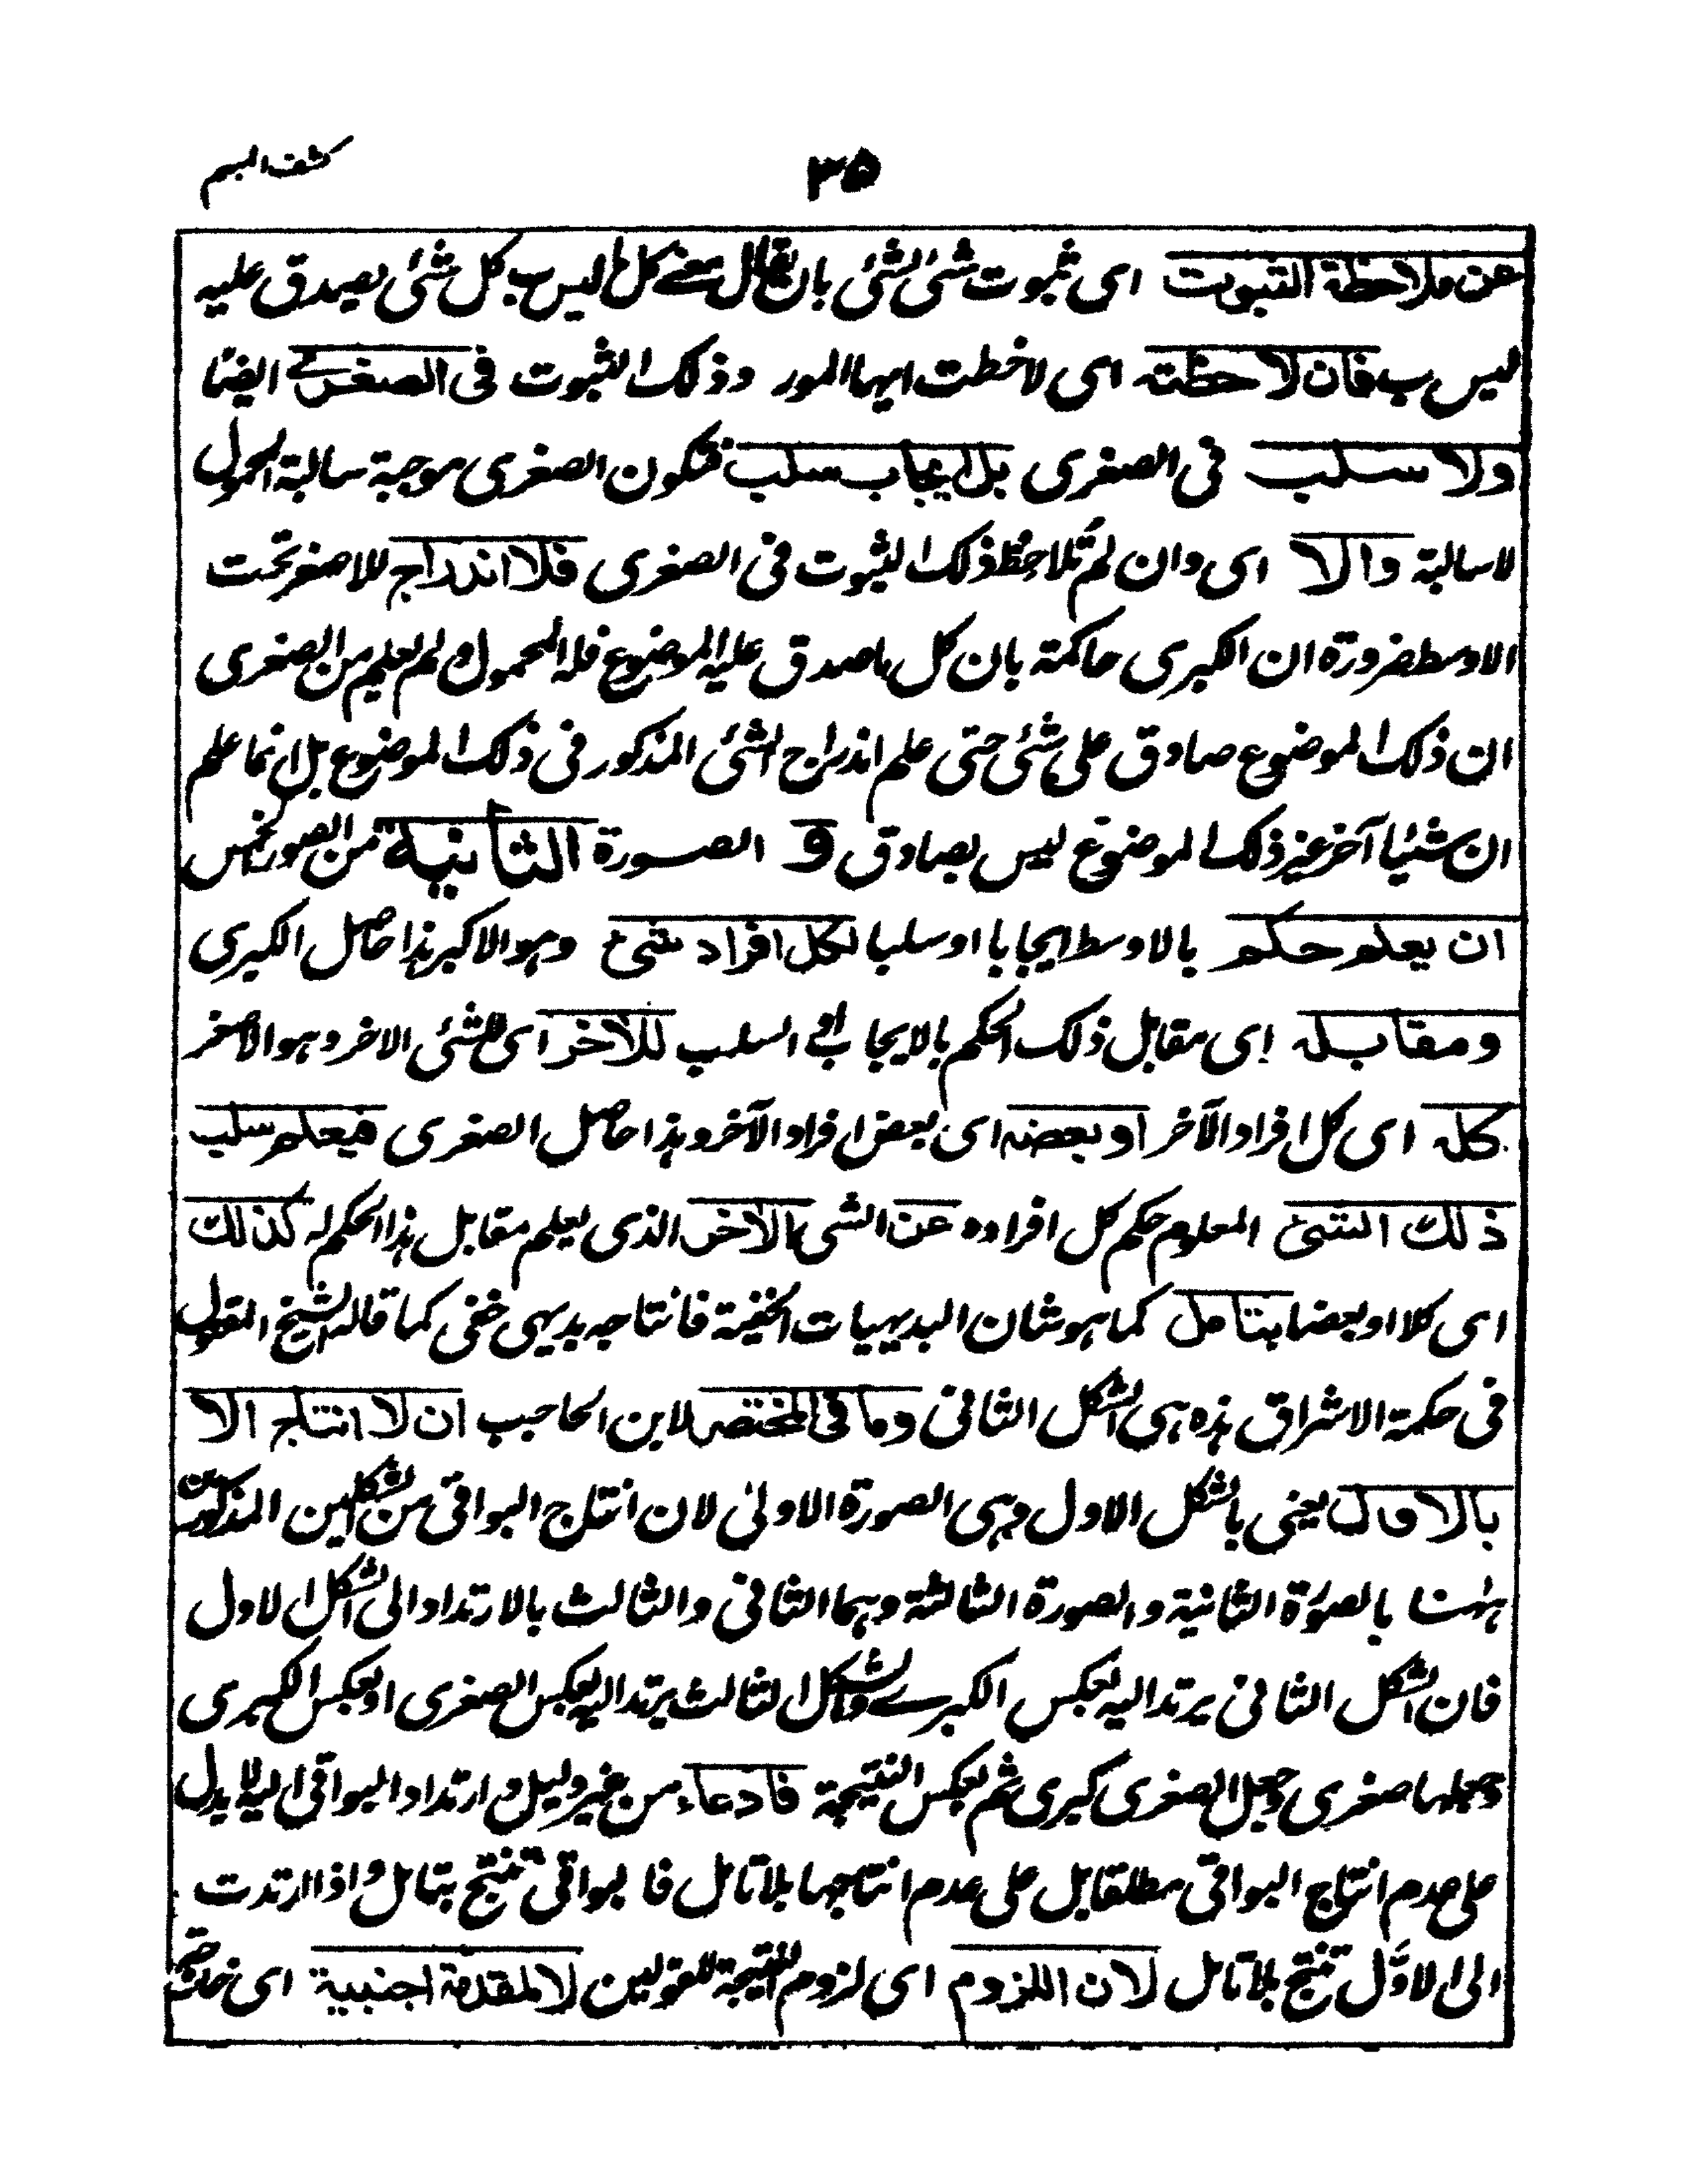 ٣٥
كشف المبهم
عن ملاحظة الثبوت اى ثبوت شئ لشئ بان يقال معنے كل ما ليس ب كل شئ يصدق عليه
ليس ب فان لاحظته اى لاحظت ايها المورد ذلك الثبوت فى الصغرے ايضا
ولا سلب فى الصغرى بل ايجاب سلب فتكون الصغرى موجبة سالبة المحمول
لا سالبة والا اى وان لم تلاحظ ذلك الثبوت فى الصغرى فلا اندراج للاصغر تحت
الاوسط ضرورة ان الكبرى حاكمة بان كل ما صدق عليه الموضوع فله المحمول ولم يعلم من الصغرى
ان ذلك الموضوع صادق على شئ حتى علم اندراج الشئ المذكور فى ذلك الموضوع بل انما علم
ان شيئا آخر غير ذلك الموضوع ليس بصادق و الصورة الثانية من الصور الخمس
ان يعلم حكم بالاوسط ايجابا او سلبا لكل افراد شئ وهو الاكبر هذا حاصل الكبرى
ومقابله اى مقابل ذلك الحكم بالايجاب او السلب للآخر اى للشئ الاخر وهو الاصغر
كله اى كل افراد الآخر او بعضه اى بعض افراد الآخر وهذا حاصل الصغرى فيعلم سلب
ذلك الشئ المعلوم حكم كل افراده عن الشئ الآخر الذى يعلم مقابل هذا الحكم له كذلك
اى كلا او بعضا بتامل كما هو شان البديهيات الخفية فانتاجه بديهى خفى كما قاله الشيخ المقتول
فى حكمة الاشراق هذه هى الشكل الثانى وما فى المختصر لابن الحاجب ان لا انتاج الا
بالاول يعنى بالشكل الاول وهى الصورة الاولىٰ لان انتاج البواقى من الشكلين المذكورين
ههنا بالصورة الثانية والصورة الثالثة وهما الثانى والثالث بالارتداد الى الشكل الاول
فان الشكل الثانى يرتد اليه بعكس الكبرے والشكل الثالث يرتد اليه بعكس الصغرى او بعكس الكبرى
وجعلها صغرى وجعل الصغرى كبرى ثم بعكس النتيجة فادعاء من غير دليل وارتداد البواقى اليه لا يدل
على عدم انتاج البواقى مطلقا بل على عدم انتاجها بلا تامل فالبواقى تنتج بتامل واذا ارتدت
الى الاول تنتج بلا تامل لان اللزوم اى لزوم النتيجة للقولين لا لمقدمة اجنبية اى خارجة